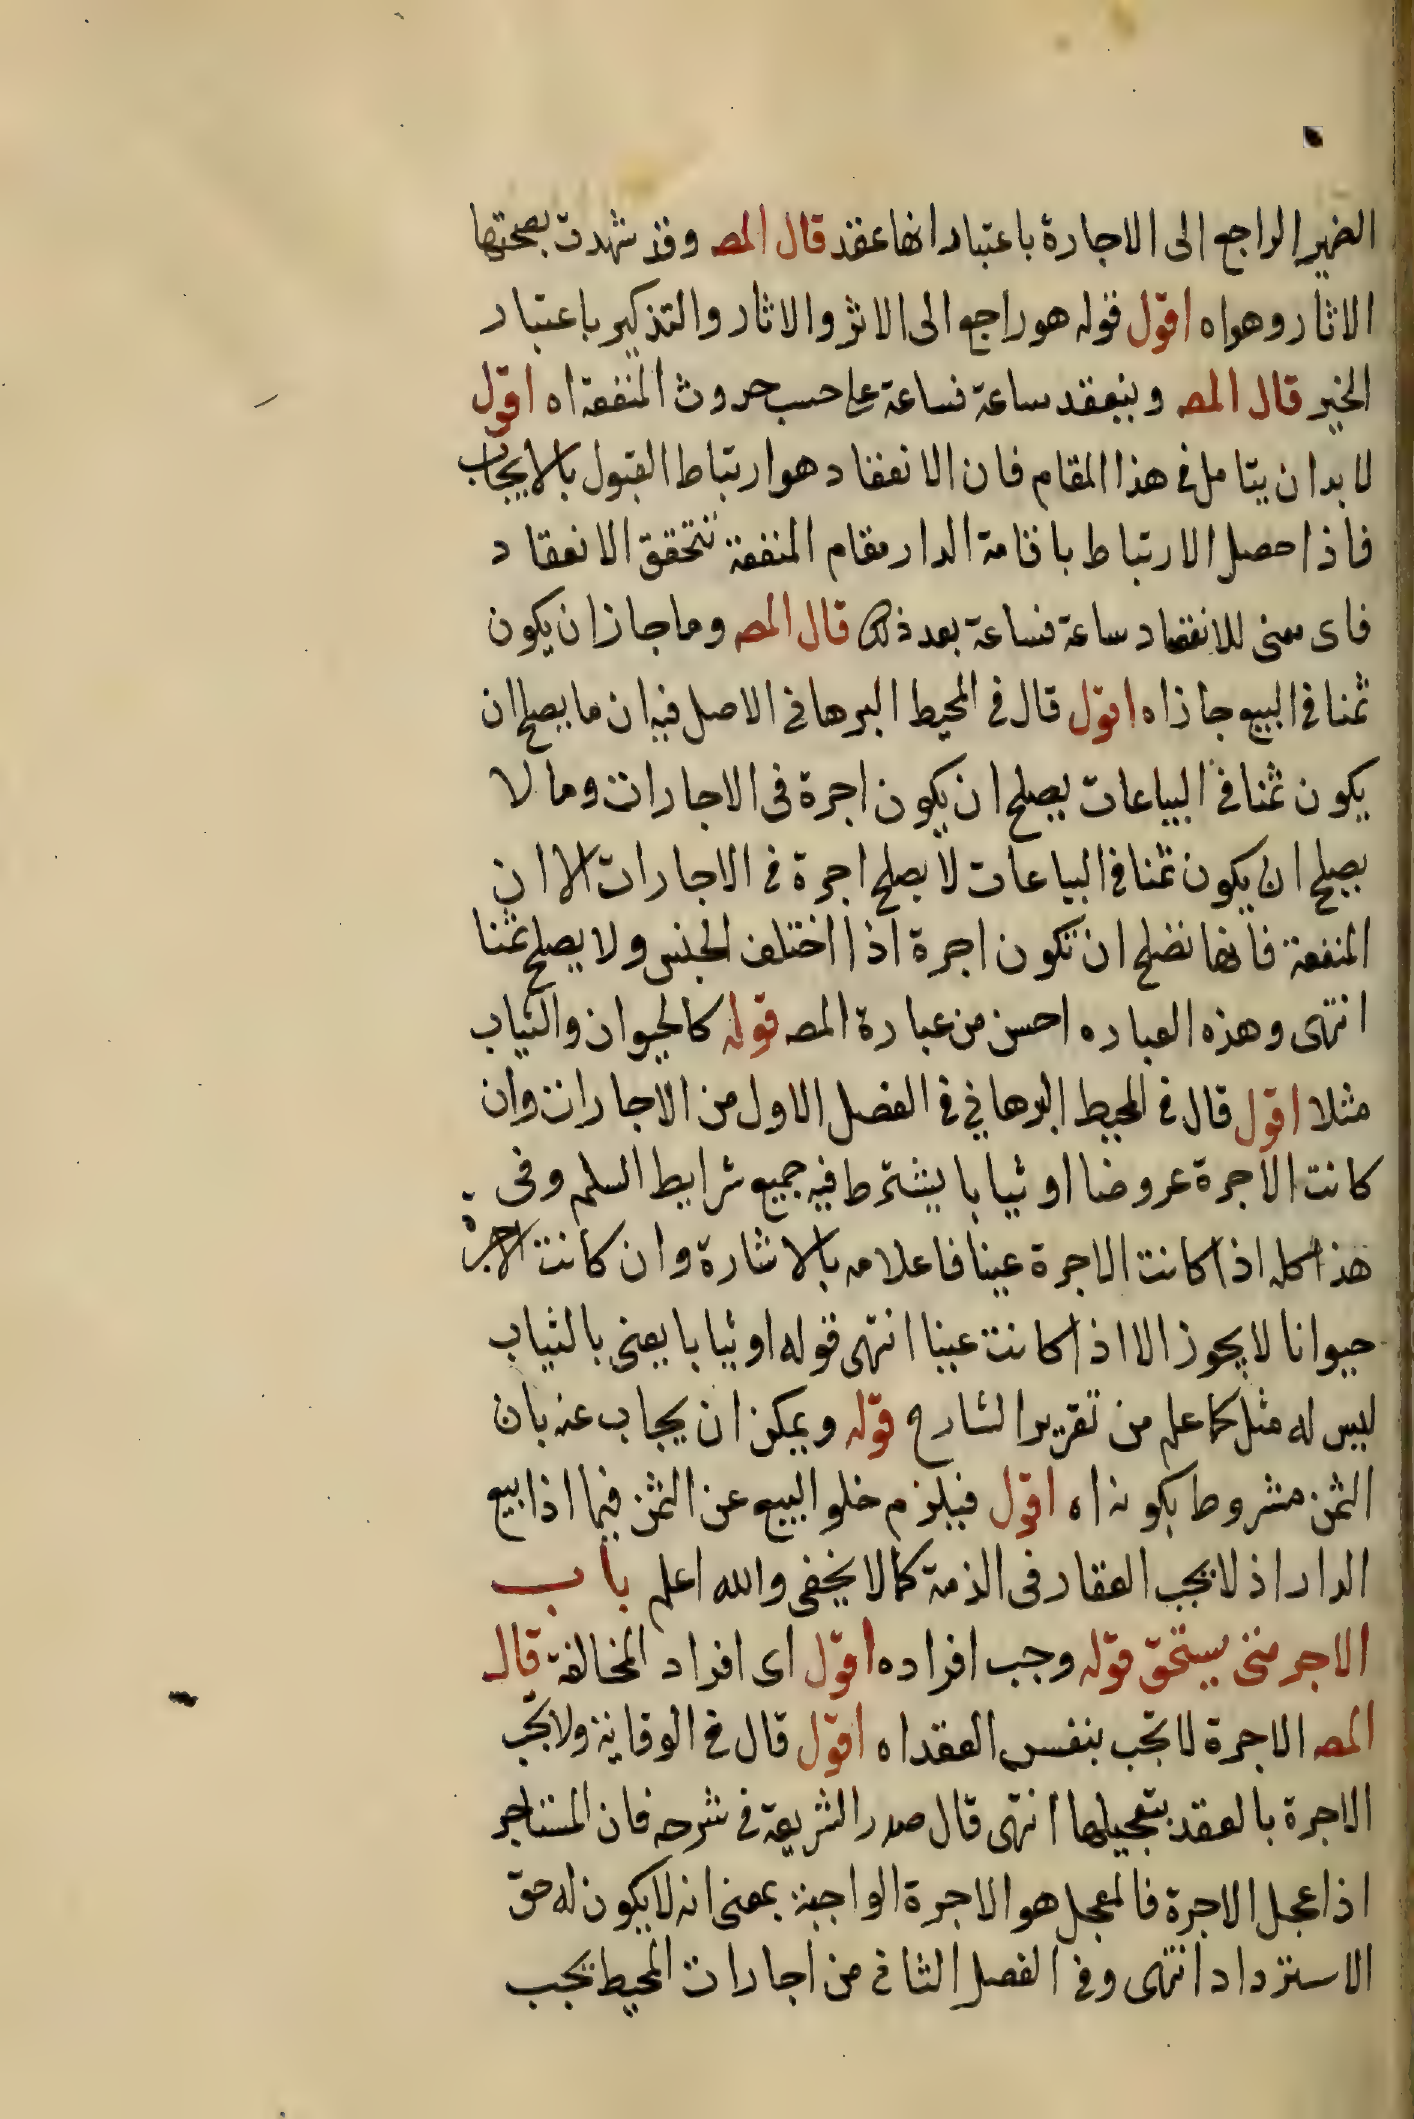 الضمير الراجع الى الاجارة باعتبار انها عقد قال المص وقد شهدت بصحتها
الاثار وهواه اقول قوله هو راجع الى الاثر والاثار والتذكير باعتبار
الخبر قال المص وينعقد ساعة فساعة على حسب حدوث المنفعة اه اقول
لا بد ان يتامل في هذا المقام فان الانعقاد هو ارتباط القبول بالايجاب
فاذا حصل الارتباط باقامة الدار مقام المنفعة تتحقق الانعقاد
فاى معنى للانعقاد ساعة فساعة بعد ذلك قال المص وما جاز ان يكون
ثمنا في البيع جاز اه اقول قال في المحيط البرهاني الاصل فيه ان ما يصلح ان
يكون ثمنا في البياعات يصلح ان يكون اجرة في الاجارات وما لا
يصلح ان يكون ثمنا في البياعات لا يصلح اجرة في الاجارات الا ان
المنفعة فانها تصلح ان تكون اجرة اذا اختلف الجنس ولا يصلح ثمنا
انتهى وهذه العباره احسن من عبارة المص قوله كالحيوان والثياب
مثلا اقول قال في المحيط البرهاني في الفصل الاول من الاجارات وان
كانت الاجرة عروضا او ثيابا يشترط فيه جميع شرايط السلم وفى
هذا كله اذا كانت الاجرة عينا فاعلامه بالاشارة وان كانت الاجرة
حيوانا لا يجوز الا اذا كانت عينا انتهى قوله او ثيابا يعنى بالثياب
ليس له مثل كما علم من تقرير الشارح قوله ويمكن ان يجاب عنه بان
الثمن مشروط بكونه اه اقول فيلزم خلو البيع عن الثمن فيما اذا بيع
الدار اذ لا يجب العقار فى الذمة كما لا يخفى والله اعلم باب
الاجر متى يستحق قوله وجب افراده اقول اى افراد المخالفة قال
المص الاجرة لا تجب بنفس العقد اه اقول قال في الوقاية ولا تجب
الاجرة بالعقد بتعجيلها انتهى قال صدر الشريعة في شرحه فان المستاجر
اذا عجل الاجرة فالمعجل هو الاجرة الواجبة بمعنى انه لا يكون له حق
الاسترداد انتهى وفي الفصل الثاني من اجارات المحيط يجب